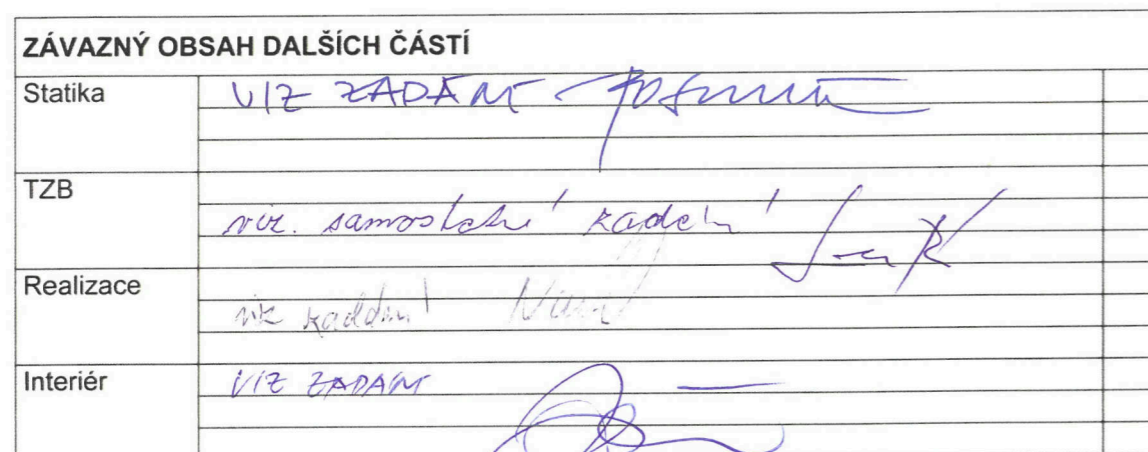 ZÁVAZNÝ OBSAH DALŠÍCH ČÁSTÍ
Statika VIZ ZADÁNÍ
TZB viz. samostatné zadání
Realizace viz zadání
Interiér VIZ ZADÁNÍ